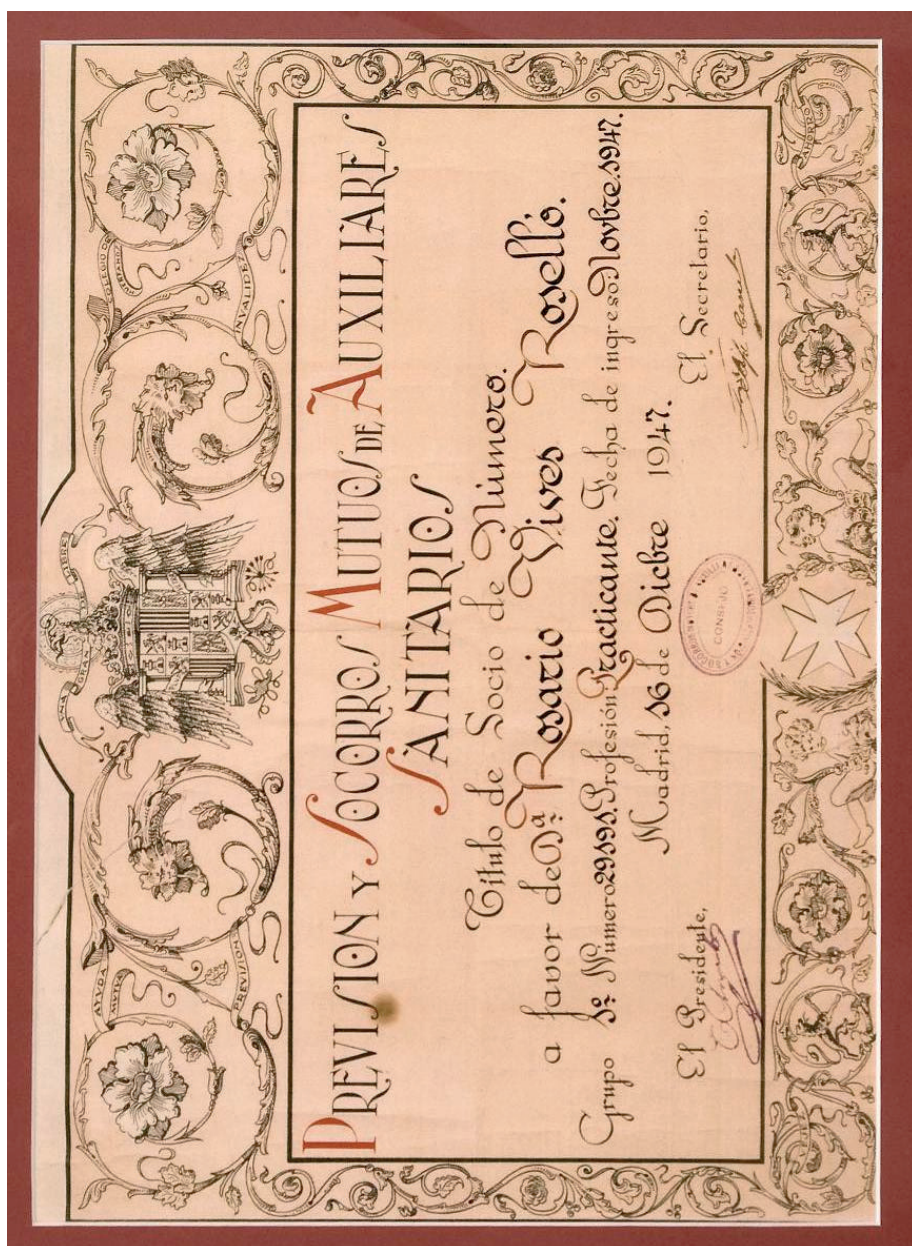 UNA GRAN LIBRE
AYUDA MUTUA
PREVISION
COLEGIO DE HUERFANOS
INVALIDEZ
PREVISION Y SOCORROS MUTUOS DE AUXILIARES
SANITARIOS
Titulo de Socio de Número.
a favor de Dª Rosario Vives Roselló.
Grupo 1º Numero 29191. Profesión Practicante. Fecha de ingreso: Novbre. 1947.
Madrid, 16 de Dicbre 1947.
El Presidente, El Secretario,
CONSEJO
AHORRO